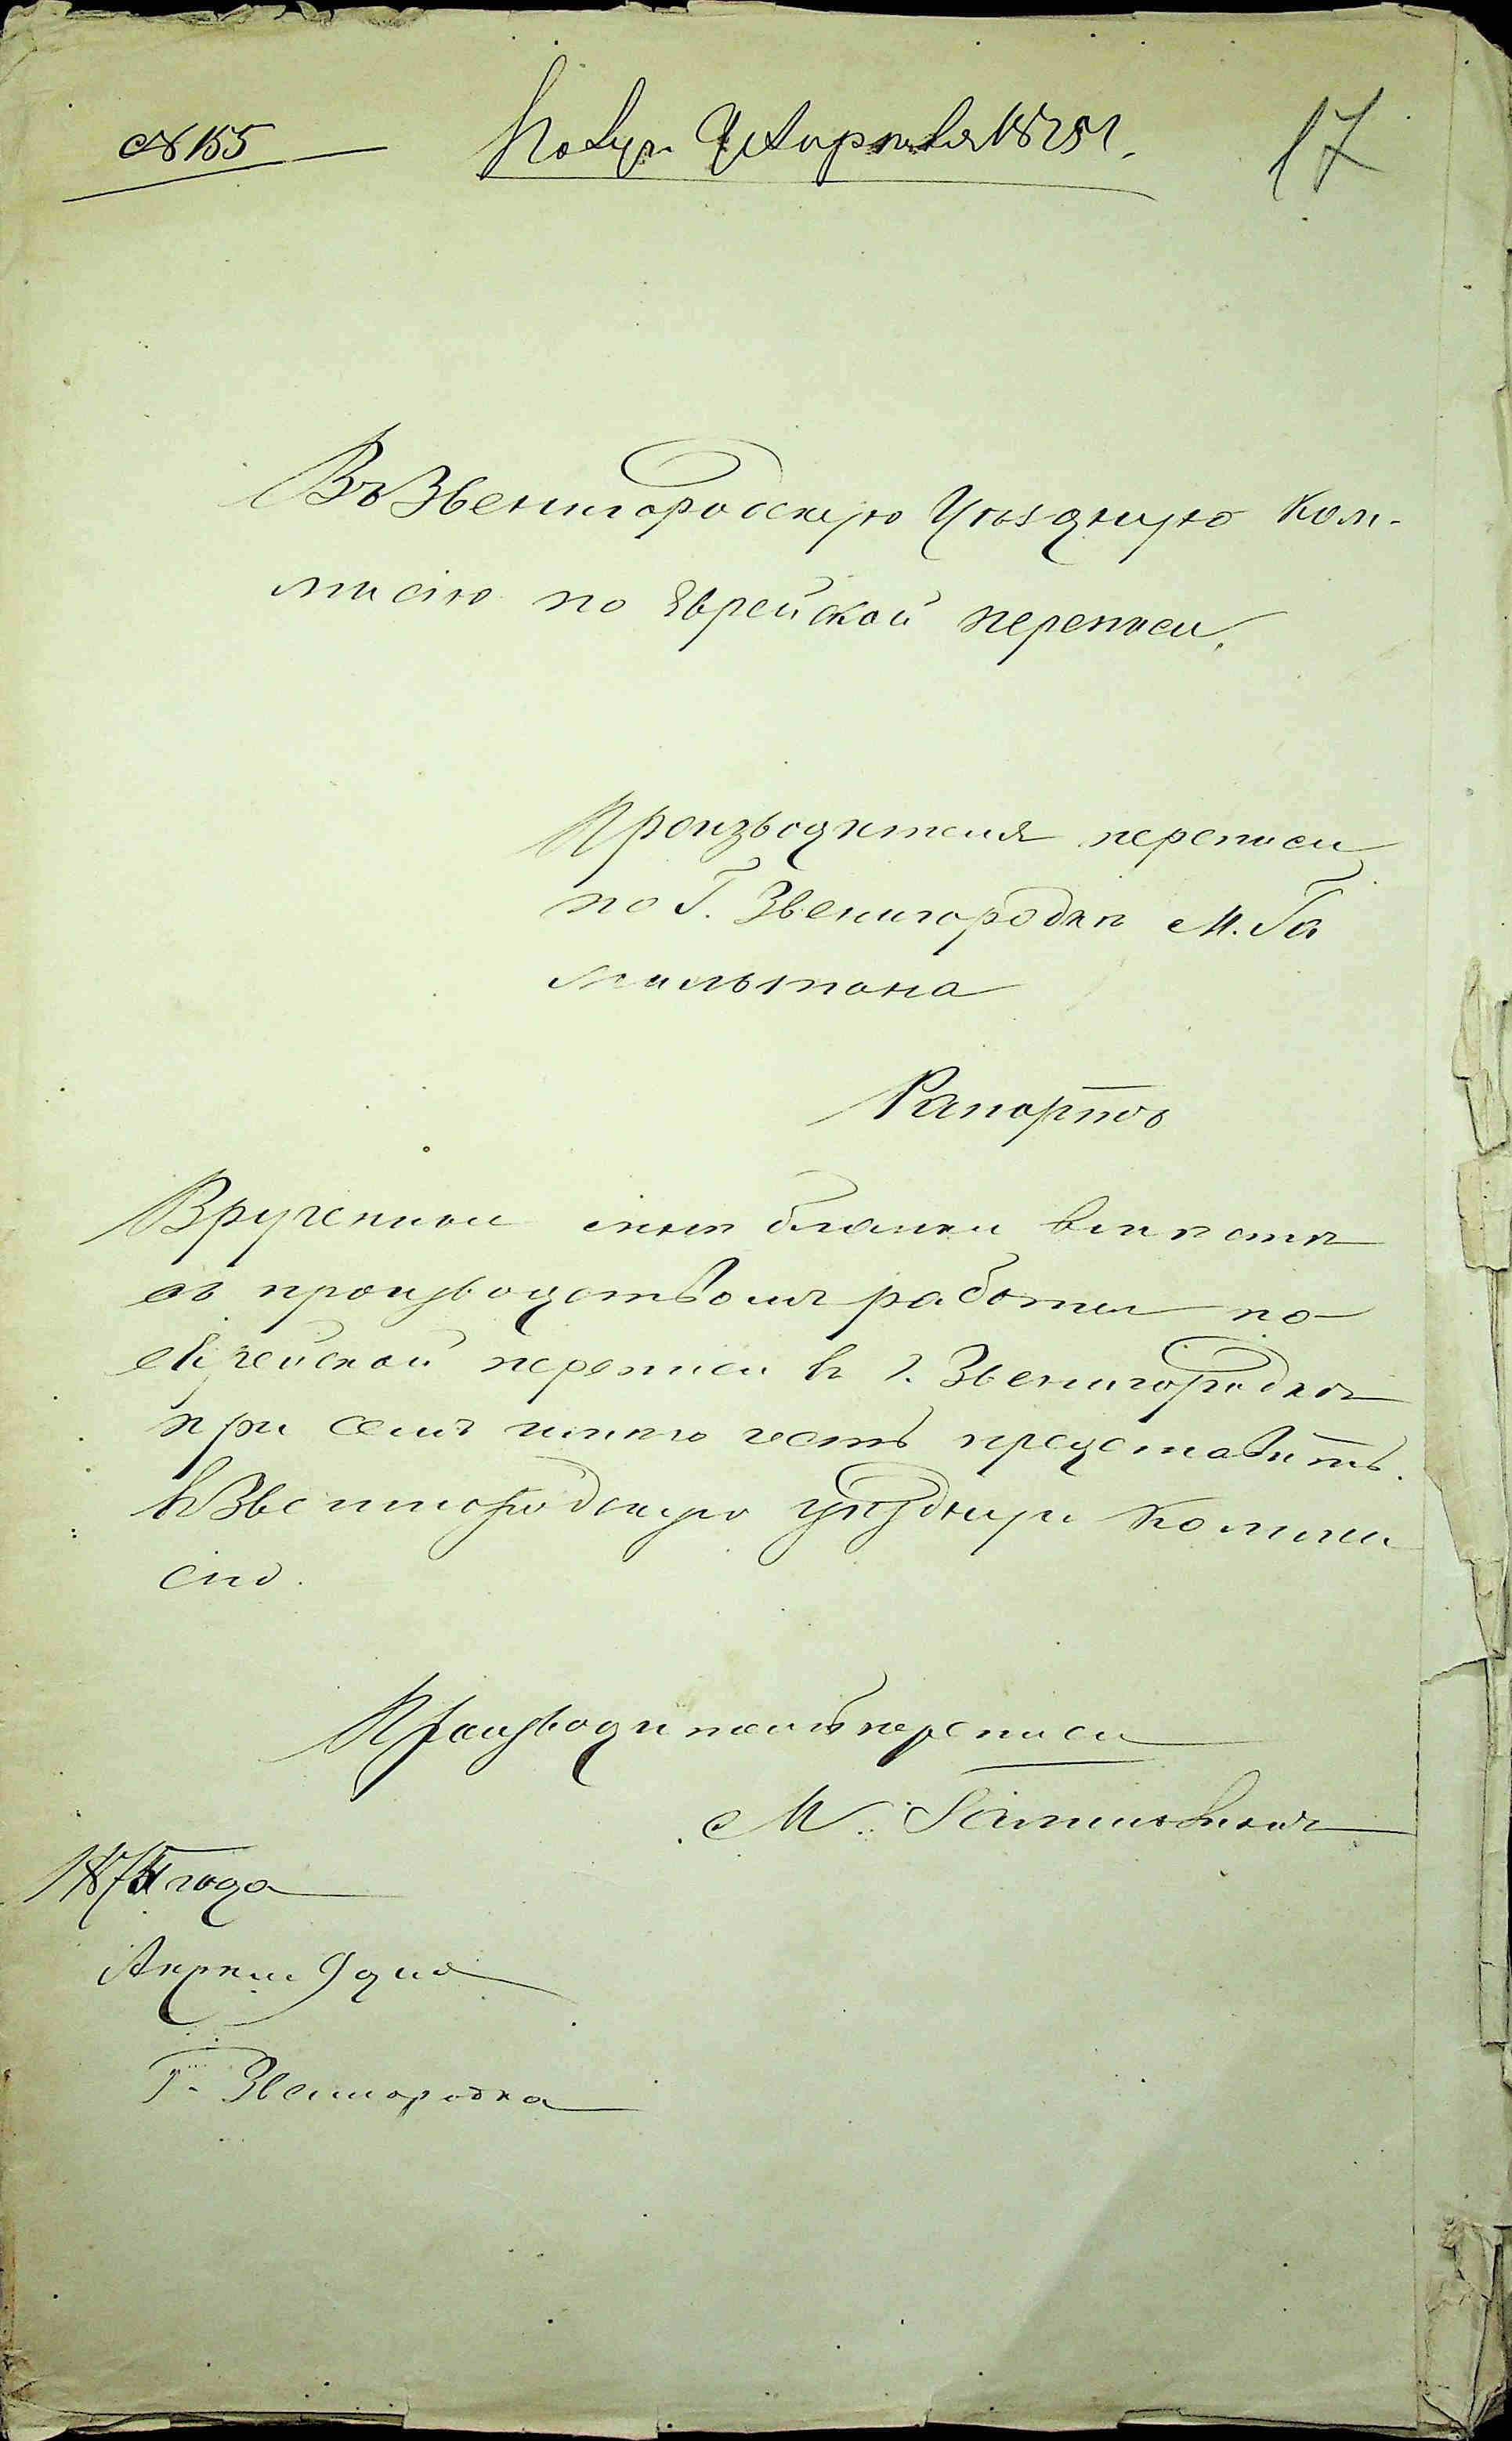 № 155
Получ. 9 Апреля 1875 г.
17
Въ Звенигородскую Уѣздную Ком-
мисію по Еврейской переписи.
Производителя переписи
по Г. Звенигородкѣ М. Га
мильтона
Рапортъ
Врученные мнѣ бланки вмѣстѣ
съ производствомъ работы по
еврейской переписи въ г. Звенигородкѣ
при семъ имѣю честь представить
въ Звенигородскую уѣздную Комми
сію.
Производитель переписи
М. Гамильтонъ
1875 года
Апрѣля 9 дня
Г. Звенигородка